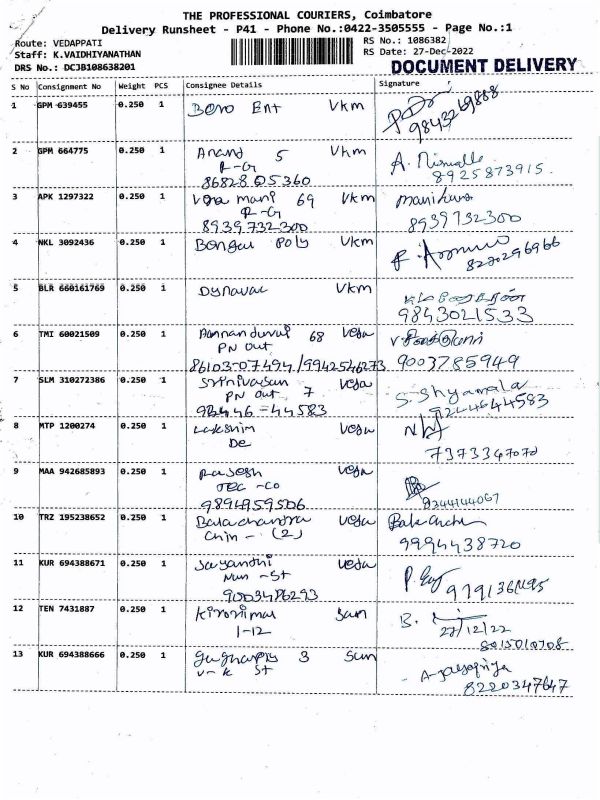 THE PROFESSIONAL COURIERS, Coimbatore
Delivery Runsheet - P41 - Phone No.:0422-3505555 - Page No.:1
Route: VEDAPPATI
RS No.: 1086382
Staff: K.VAIDHIYANATHAN
RS Date: 27-Dec-2022
DRS No.: DCJB108638201
DOCUMENT DELIVERY
S No Consignment No Weight PCS Consignee Details Signature
1 GPM 639455 0.250 1 Ent Vkm
9843269888
2 GPM 664775 0.250 1 Anand 5 Vkm A.
R-G 8925873915.
86828 05360
3 APK 1297322 0.250 1 mani 69 Vkm
R-G
8939732300 8939732300
4 NKL 3092436 0.250 1 Poly Vkm
8220296966
5 BLR 660161769 0.250 1 Vkm
9843021533
6 TMI 60021509 0.250 1 68 Veda
PN Out
86103-07494/9942546273 9003785949
7 SLM 310272386 0.250 1 Srinivasan Veda S. Shyamala
PN Out 7
92446-44583 9244644583
8 MTP 1200274 0.250 1 Veda
De 7373347070
9 MAA 942685893 0.250 1 Rajesh Veda
Tec-Co
9894959506 9344144067
10 TRZ 195238652 0.250 1 Balachandra Veda
Chin-(2) 9994438720
11 KUR 694388671 0.250 1 Jayanthi Veda P.
Nun-St
9003486293
12 TEN 7431887 0.250 1 B.
1-12 27/12/22
8015010708
13 KUR 694388666 0.250 1 3 A-
V-K St 8220347647